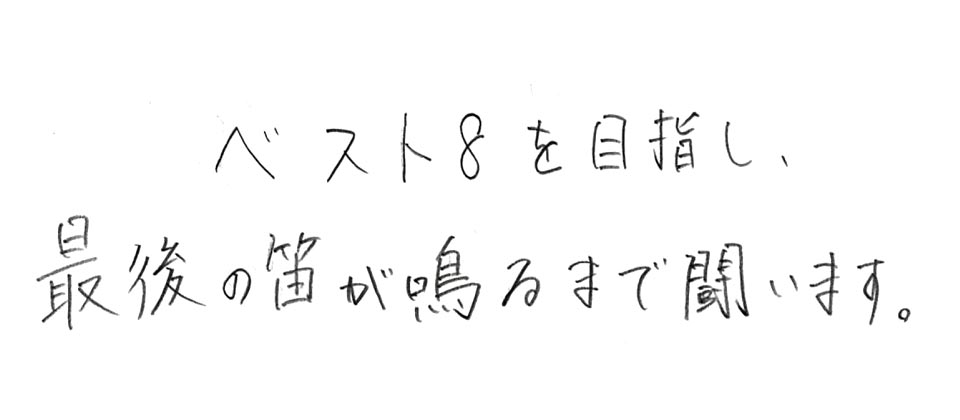 ベスト8を目指し、
最後の笛が鳴るまで闘います。